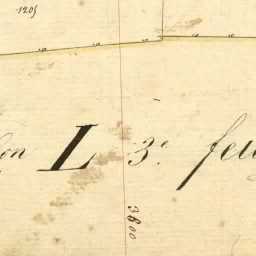 1205
on L 3e feu
3800